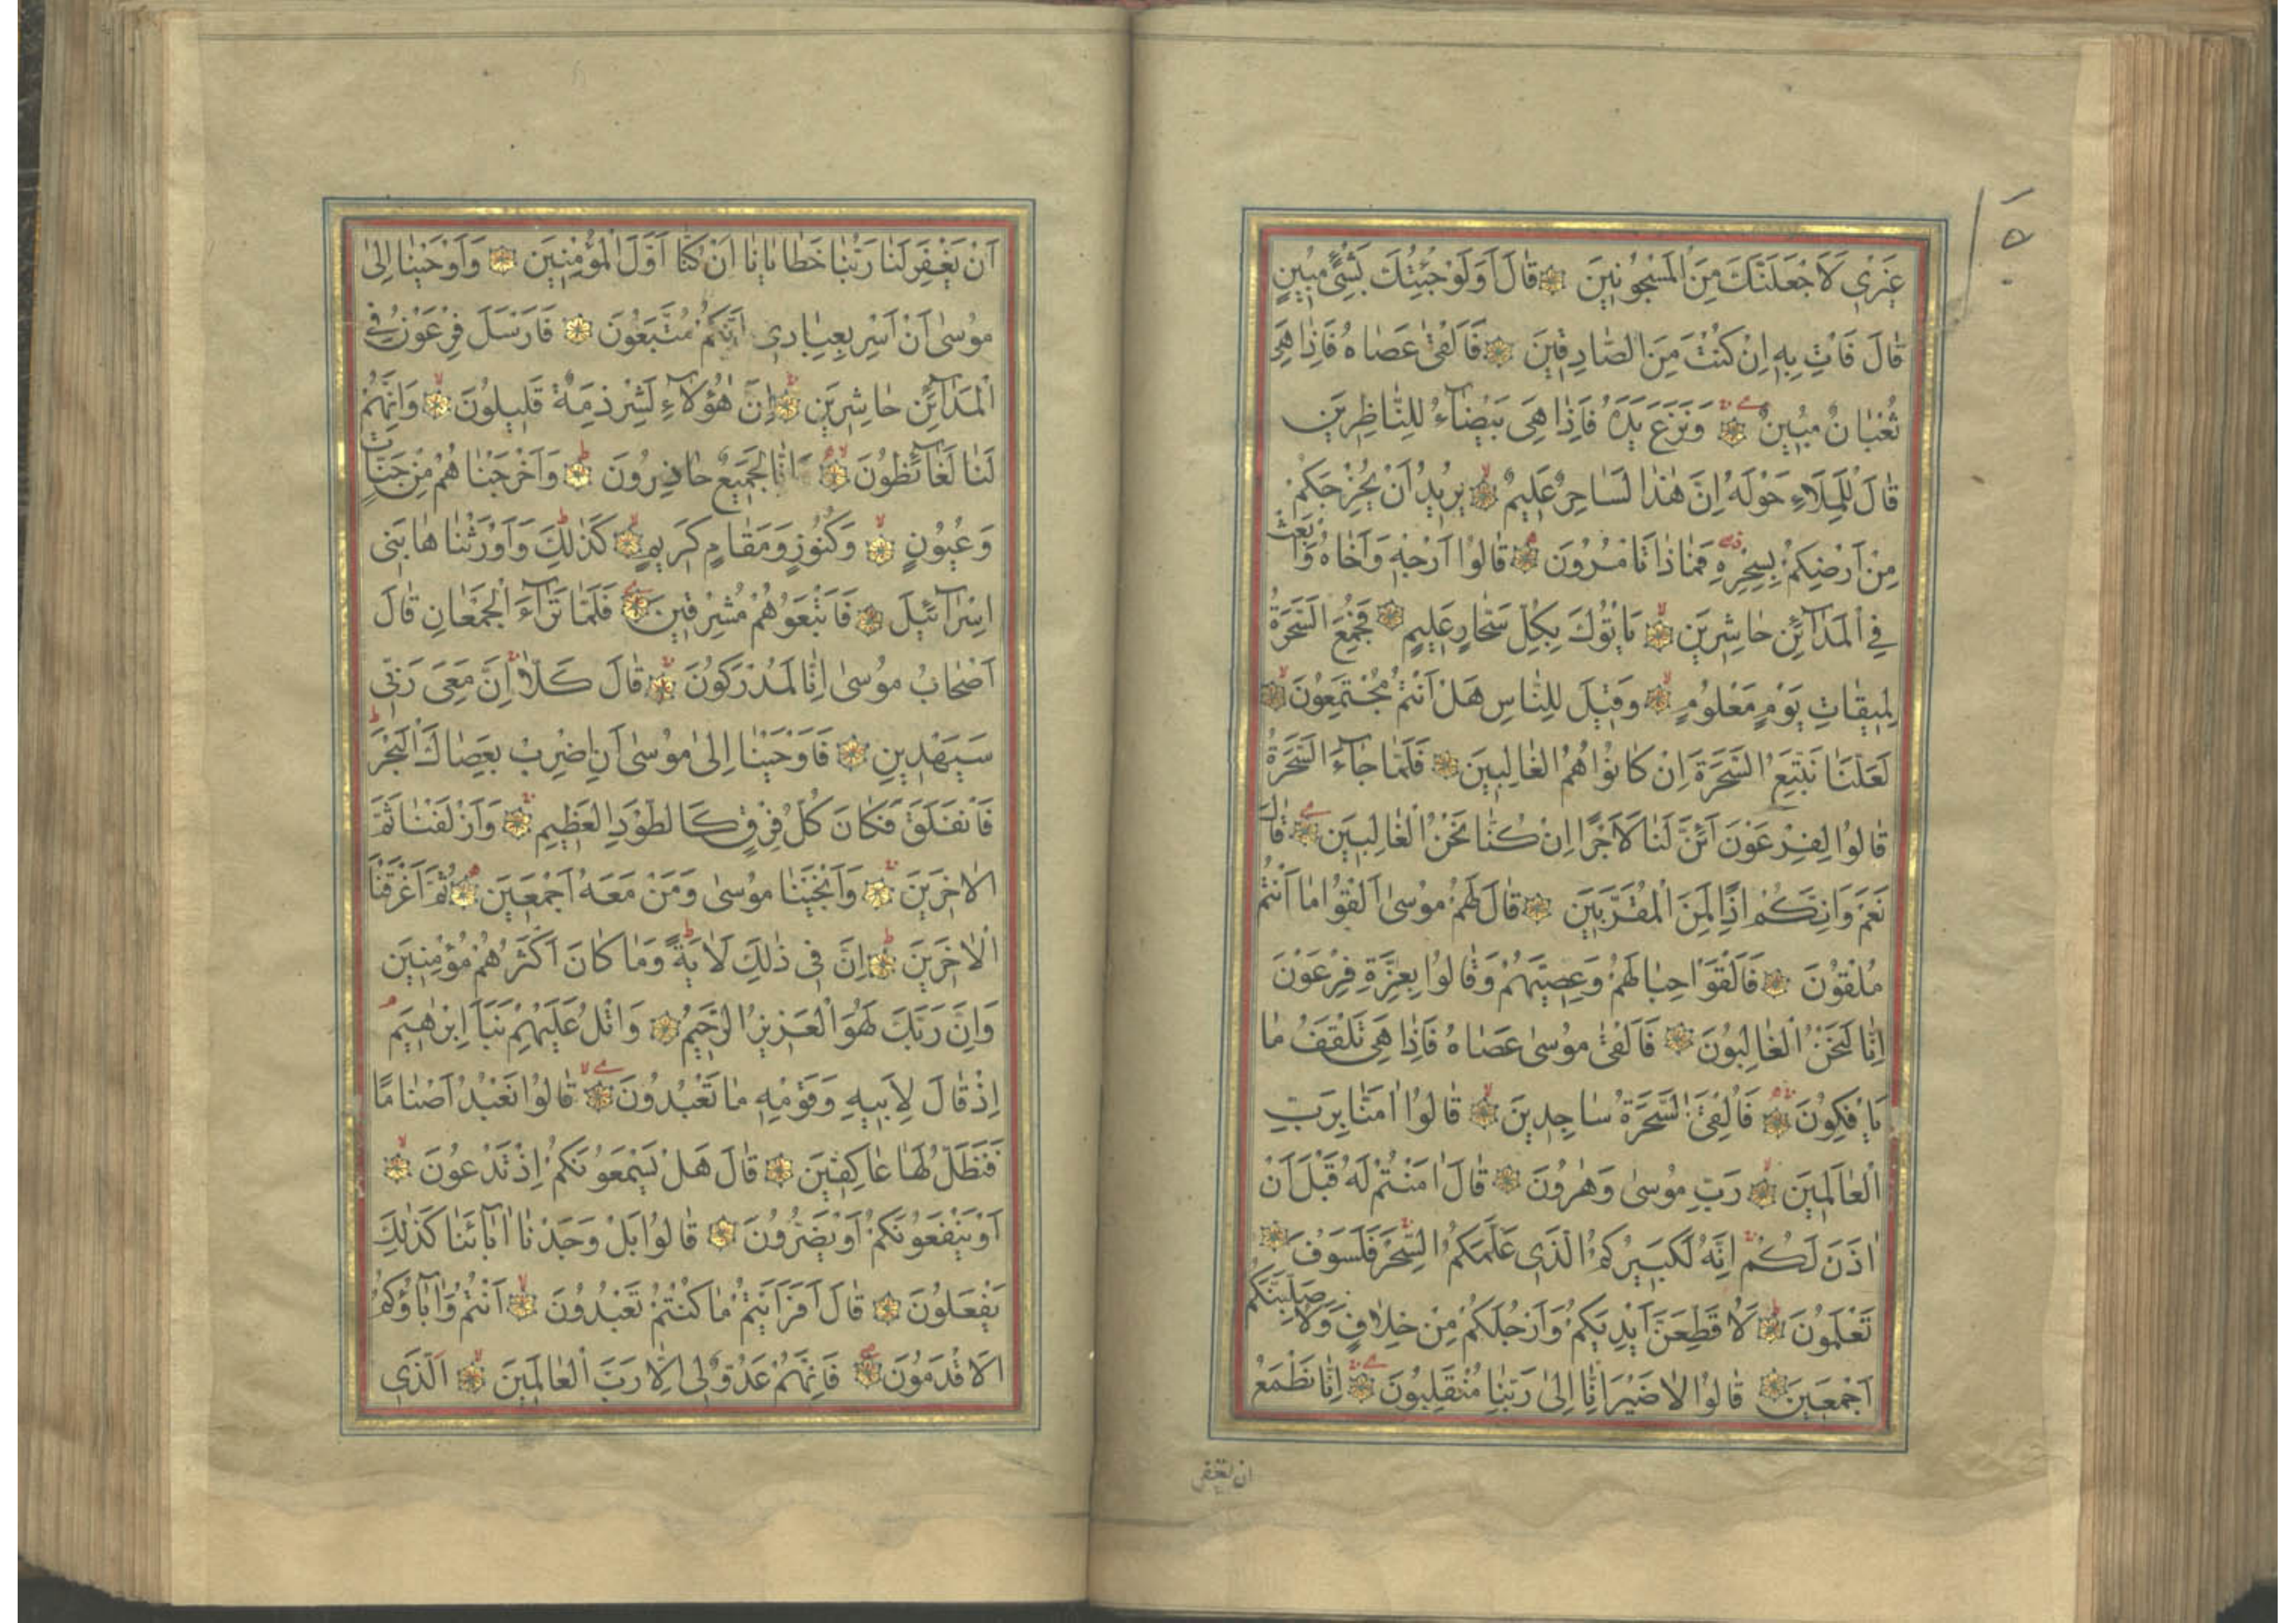 غَيْرِي لَاَجْعَلَنَّكَ مِنَ الْمَسْجُونِينَ قَالَ اَوَلَوْ جِئْتُكَ بِشَيْءٍ مُبِينٍ
قَالَ فَاْتِ بِهِ اِنْ كُنْتَ مِنَ الصَّادِقِينَ فَاَلْقٰى عَصَاهُ فَاِذَا هِيَ
ثُعْبَانٌ مُبِينٌ وَنَزَعَ يَدَهُ فَاِذَا هِيَ بَيْضَآءُ لِلنَّاظِرِينَ
قَالَ لِلْمَلَاءِ حَوْلَهُ اِنَّ هٰذَا لَسَاحِرٌ عَلِيمٌ يُرِيدُ اَنْ يُخْرِجَكُمْ
مِنْ اَرْضِكُمْ بِسِحْرِهِ فَمَاذَا تَاْمُرُونَ قَالُوا اَرْجِهْ وَاَخَاهُ وَابْعَثْ
فِي الْمَدَآئِنِ حَاشِرِينَ يَاْتُوكَ بِكُلِّ سَحَّارٍ عَلِيمٍ فَجُمِعَ السَّحَرَةُ
لِمِيقَاتِ يَوْمٍ مَعْلُومٍ وَقِيلَ لِلنَّاسِ هَلْ اَنْتُمْ مُجْتَمِعُونَ
لَعَلَّنَا نَتَّبِعُ السَّحَرَةَ اِنْ كَانُوا هُمُ الْغَالِبِينَ فَلَمَّا جَآءَ السَّحَرَةُ
قَالُوا لِفِرْعَوْنَ اَئِنَّ لَنَا لَاَجْرًا اِنْ كُنَّا نَحْنُ الْغَالِبِينَ قَالَ
نَعَمْ وَاِنَّكُمْ اِذًا لَمِنَ الْمُقَرَّبِينَ قَالَ لَهُمْ مُوسٰى اَلْقُوا مَا اَنْتُمْ
مُلْقُونَ فَاَلْقَوْا حِبَالَهُمْ وَعِصِيَّهُمْ وَقَالُوا بِعِزَّةِ فِرْعَوْنَ
اِنَّا لَنَحْنُ الْغَالِبُونَ فَاَلْقٰى مُوسٰى عَصَاهُ فَاِذَا هِيَ تَلْقَفُ مَا
يَاْفِكُونَ فَاُلْقِيَ السَّحَرَةُ سَاجِدِينَ قَالُوا اٰمَنَّا بِرَبِّ
الْعَالَمِينَ رَبِّ مُوسٰى وَهٰرُونَ قَالَ اٰمَنْتُمْ لَهُ قَبْلَ اَنْ
اٰذَنَ لَكُمْ اِنَّهُ لَكَبِيرُكُمُ الَّذِي عَلَّمَكُمُ السِّحْرَ فَلَسَوْفَ
تَعْلَمُونَ لَاُقَطِّعَنَّ اَيْدِيَكُمْ وَاَرْجُلَكُمْ مِنْ خِلَافٍ وَلَاُصَلِّبَنَّكُمْ
اَجْمَعِينَ قَالُوا لَا ضَيْرَ اِنَّا اِلٰى رَبِّنَا مُنْقَلِبُونَ اِنَّا نَطْمَعُ
ان يغفر
اَنْ يَغْفِرَ لَنَا رَبُّنَا خَطَايَانَا اَنْ كُنَّا اَوَّلَ الْمُؤْمِنِينَ وَاَوْحَيْنَا اِلٰى
مُوسٰى اَنْ اَسْرِ بِعِبَادِي اِنَّكُمْ مُتَّبَعُونَ فَاَرْسَلَ فِرْعَوْنُ فِي
الْمَدَآئِنِ حَاشِرِينَ اِنَّ هٰؤُلَآءِ لَشِرْذِمَةٌ قَلِيلُونَ وَاِنَّهُمْ
لَنَا لَغَآئِظُونَ وَاِنَّا لَجَمِيعٌ حَاذِرُونَ وَاَخْرَجْنَاهُمْ مِنْ جَنَّاتٍ
وَعُيُونٍ وَكُنُوزٍ وَمَقَامٍ كَرِيمٍ كَذٰلِكَ وَاَوْرَثْنَاهَا بَنِي
اِسْرَآئِيلَ فَاَتْبَعُوهُمْ مُشْرِقِينَ فَلَمَّا تَرَآءَ الْجَمْعَانِ قَالَ
اَصْحَابُ مُوسٰى اِنَّا لَمُدْرَكُونَ قَالَ كَلَّا اِنَّ مَعِيَ رَبِّي
سَيَهْدِينِ فَاَوْحَيْنَا اِلٰى مُوسٰى اَنِ اضْرِبْ بِعَصَاكَ الْبَحْرَ
فَانْفَلَقَ فَكَانَ كُلُّ فِرْقٍ كَالطَّوْدِ الْعَظِيمِ وَاَزْلَفْنَا ثَمَّ
الْاٰخَرِينَ وَاَنْجَيْنَا مُوسٰى وَمَنْ مَعَهُ اَجْمَعِينَ ثُمَّ اَغْرَقْنَا
الْاٰخَرِينَ اِنَّ فِي ذٰلِكَ لَاٰيَةً وَمَا كَانَ اَكْثَرُهُمْ مُؤْمِنِينَ
وَاِنَّ رَبَّكَ لَهُوَ الْعَزِيزُ الرَّحِيمُ وَاتْلُ عَلَيْهِمْ نَبَاَ اِبْرٰهِيمَ
اِذْ قَالَ لِاَبِيهِ وَقَوْمِهِ مَا تَعْبُدُونَ قَالُوا نَعْبُدُ اَصْنَامًا
فَنَظَلُّ لَهَا عَاكِفِينَ قَالَ هَلْ يَسْمَعُونَكُمْ اِذْ تَدْعُونَ
اَوْ يَنْفَعُونَكُمْ اَوْ يَضُرُّونَ قَالُوا بَلْ وَجَدْنَا اٰبَآئَنَا كَذٰلِكَ
يَفْعَلُونَ قَالَ اَفَرَاَيْتُمْ مَا كُنْتُمْ تَعْبُدُونَ اَنْتُمْ وَاٰبَآؤُكُمُ
الْاَقْدَمُونَ فَاِنَّهُمْ عَدُوٌّ لِي اِلَّا رَبَّ الْعَالَمِينَ اَلَّذِي